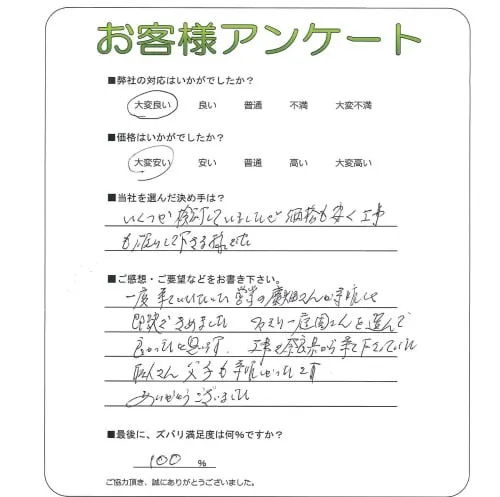 お客様アンケート
■弊社の対応はいかがでしたか？
大変良い 良い 普通 不満 大変不満
■価格はいかがでしたか？
大変安い 安い 普通 高い 大変高い
■当社を選んだ決め手は？
いくつか検討していましたが価格も安く工事
も して下さる様でした
■ご感想・ご要望などをお書き下さい。
一度来ていただいた営業の さんが
即決できめました 庭園さんを選んで
良かったと思います。工事も奈良県から来て下さっていた
職人さん 父子も
ありがとうございました
■最後に、ズバリ満足度は何％ですか？
100 %
ご協力頂き、誠にありがとうございました。